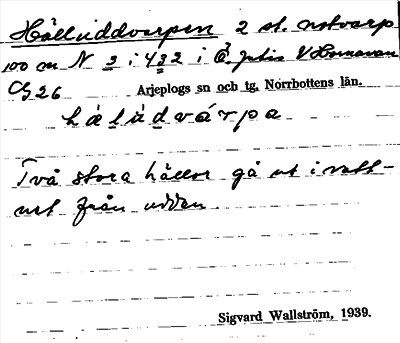 Hälluddvarpen 2 st. notvarp
100 m N 2 i 432 i Ö. Jutis V Hornavan
C926 Arjeplogs sn och tg. Norrbottens län.
hälüdvárpa
Två stora hällor gå ut i vatt-
net från udden.
Sigvard Wallström, 1939.